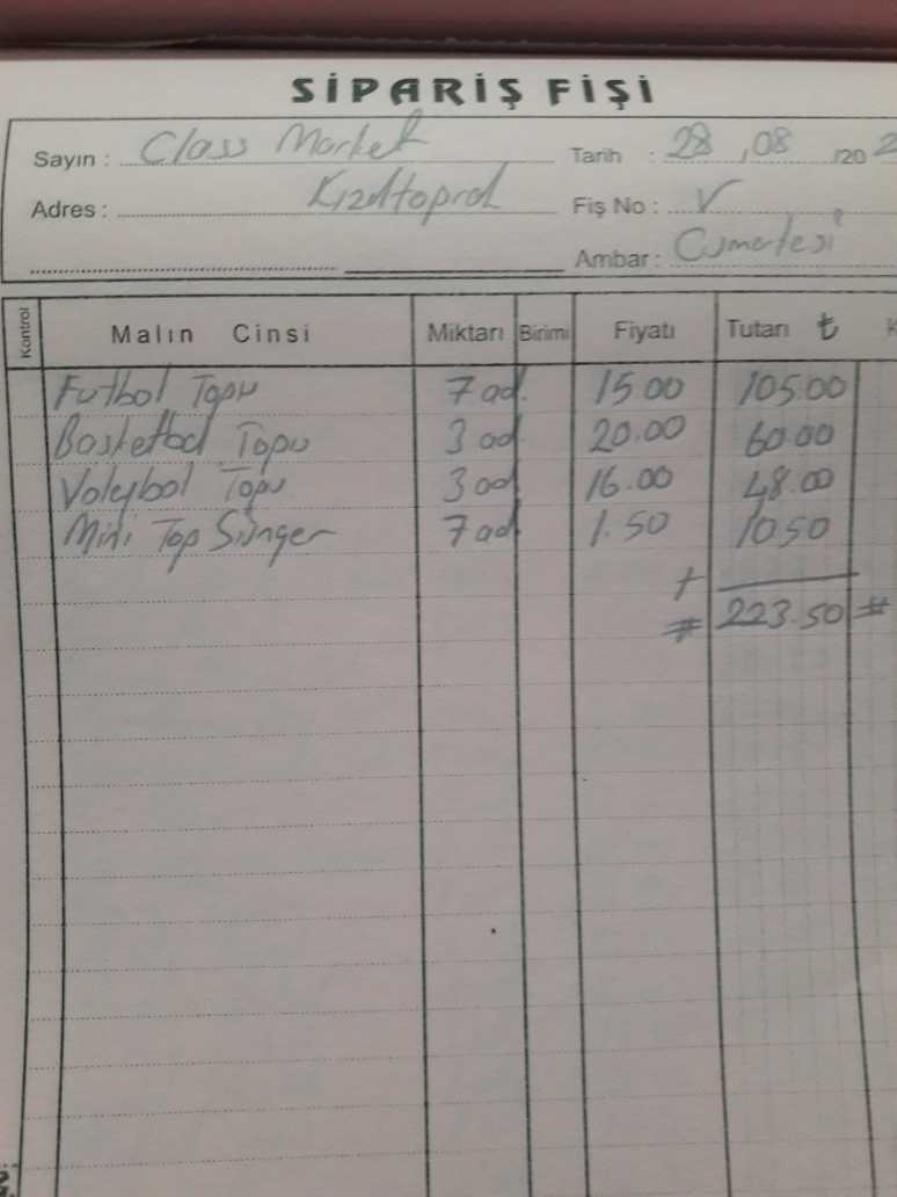 SİPARİŞ FİŞİ
Sayın : Class Market
Tarih : 28 , 08 /20 2
Adres : Kızıltoprak
Fiş No : V
Ambar : Cumartesi
Kontrol Malın Cinsi Miktarı Birimi Fiyatı Tutarı ₺ K
Futbol Topu 7 ad. 15.00 105.00
Basketbol Topu 3 ad 20.00 60.00
Voleybol Topu 3 ad 16.00 48.00
Mini Top Sünger 7 ad 1.50 10.50
+
# 223.50 #